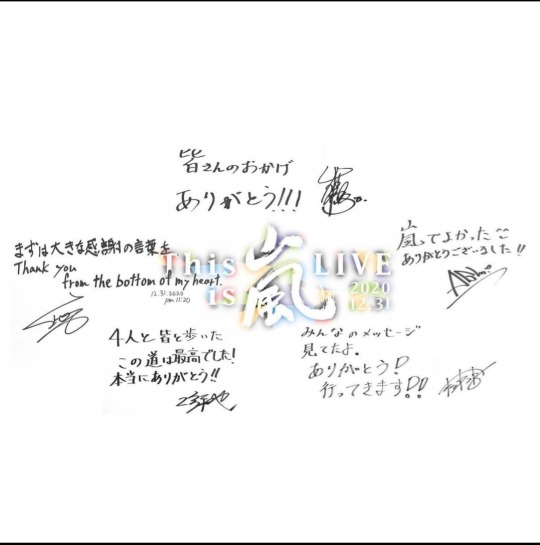 皆さんのおかげ
ありがとう!!!
嵐でよかった
ありがとうございました!!
まずは大きな感謝の言葉を
Thank you
from the bottom of my heart.
12.31.2020
pm 11:20
This is 嵐 LIVE
2020
12.31
4人と皆と歩いた
この道は最高でした!
本当にありがとう!!
みんなのメッセージ
見てたよ。
ありがとう!
行ってきます!!